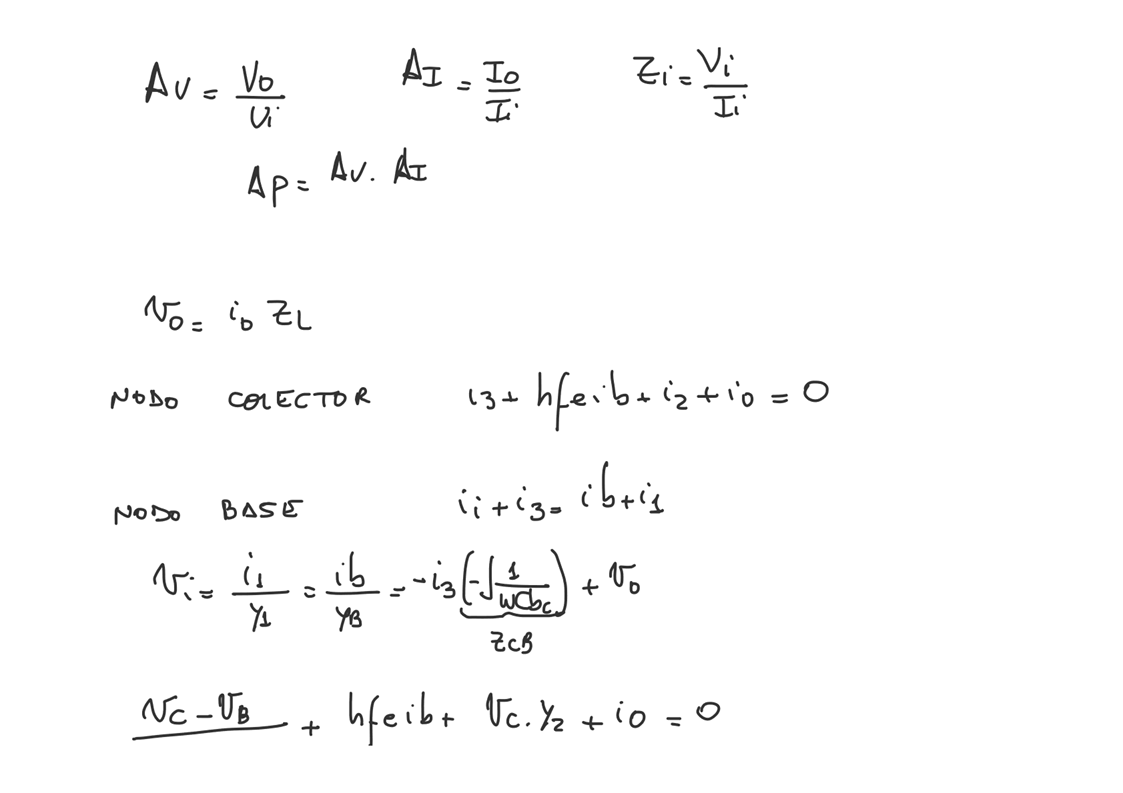 Av = Vo/Vi AI = Io/Ii Zi = Vi/Ii
Ap = Av. AI
vo = io ZL
NODO COLECTOR i3 + hfeib + i2 + io = 0
NODO BASE ii + i3 = ib + i1
vi = i1/y1 = ib/yB = -i3(-j 1/wCbc) + vo
ZCB
vc - vB/ + hfeib + vc. y2 + io = 0